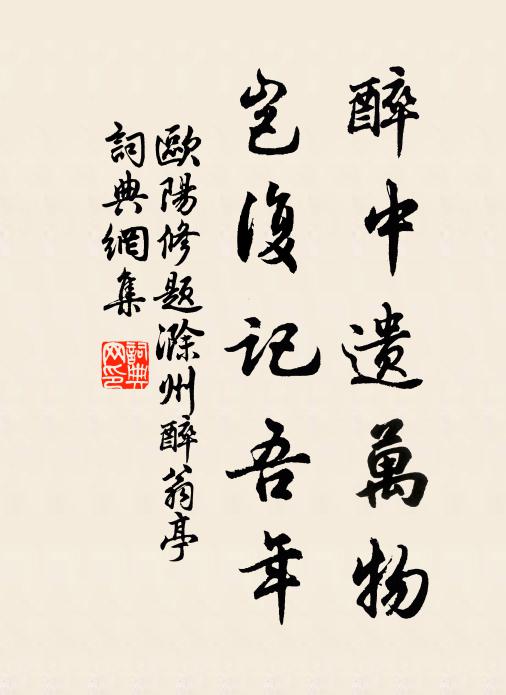 醉中遺萬物
豈復記吾年
歐陽修題滁州醉翁亭
詞典網集
詞典網印